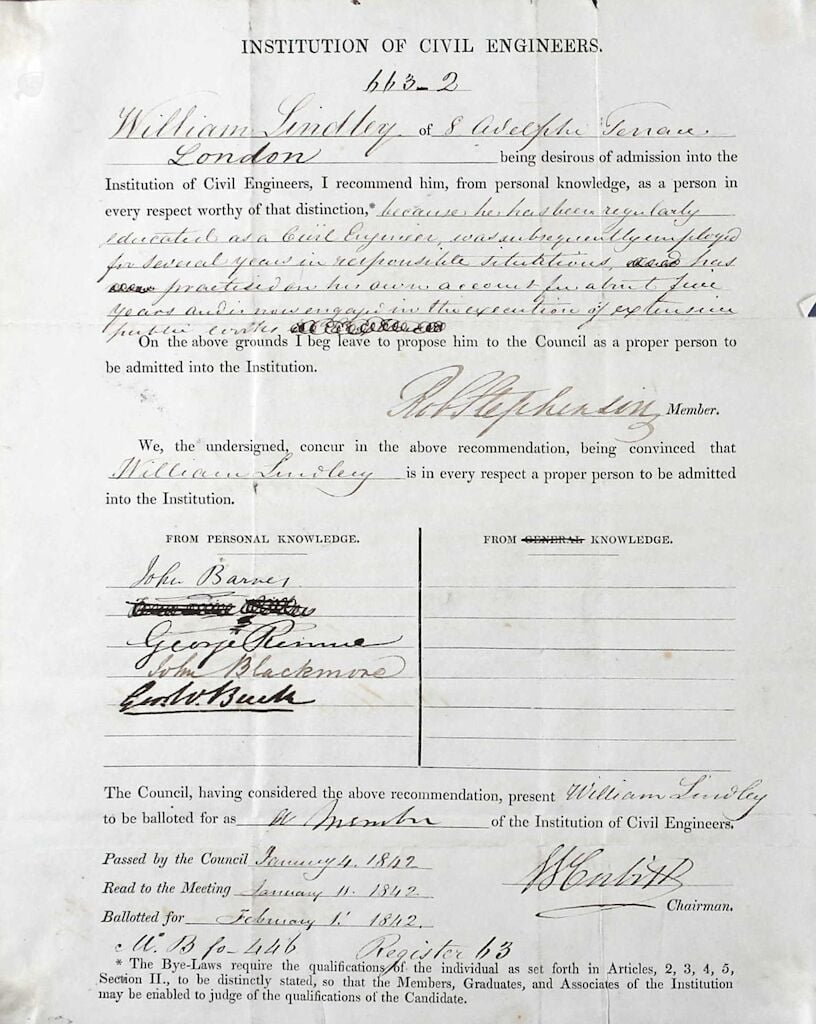 INSTITUTION OF CIVIL ENGINEERS.
663-2
William Lindley of 8 Adelphi Terrace
London being desirous of admission into the
Institution of Civil Engineers, I recommend him, from personal knowledge, as a person in
every respect worthy of that distinction,* because he has been regularly
educated as a Civil Engineer, was subsequently employed
for several years in responsible situations, has
practised on his own account for about five
years and is now engaged in the execution of extensive
public works
On the above grounds I beg leave to propose him to the Council as a proper person to
be admitted into the Institution.
Rob Stephenson Member.
We, the undersigned, concur in the above recommendation, being convinced that
William Lindley is in every respect a proper person to be admitted
into the Institution.
FROM PERSONAL KNOWLEDGE.
John Barnes
George Rennie
John Blackmore
Geo. W. Buck
FROM GENERAL KNOWLEDGE.
The Council, having considered the above recommendation, present William Lindley
to be balloted for as a Member of the Institution of Civil Engineers.
Passed by the Council January 4. 1842
Read to the Meeting January 11. 1842
Ballotted for February 1. 1842.
Chairman.
M. B fo- 446 Register 63
* The Bye-Laws require the qualifications of the individual as set forth in Articles, 2, 3, 4, 5,
Section II., to be distinctly stated, so that the Members, Graduates, and Associates of the Institution
may be enabled to judge of the qualifications of the Candidate.